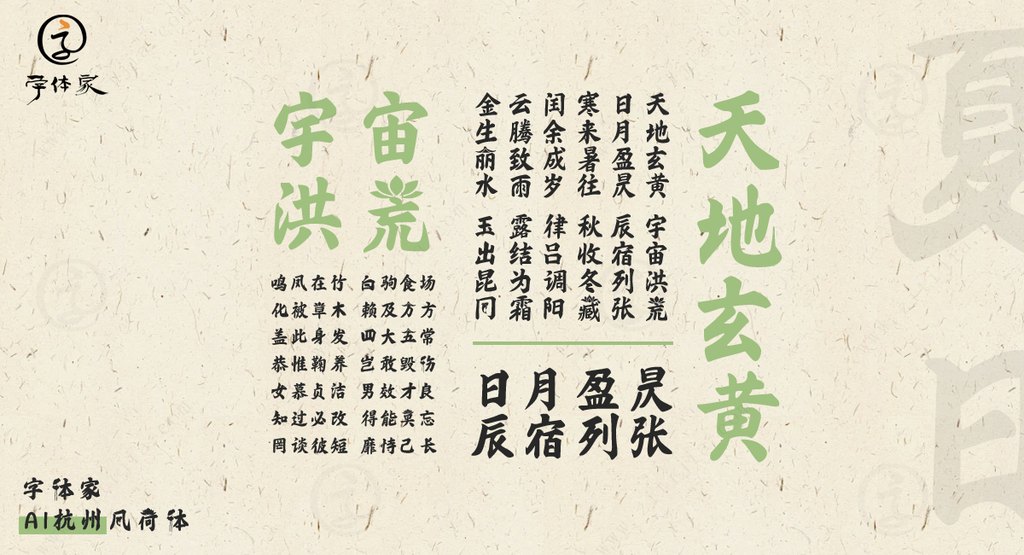 字体家
天地玄黄
天地玄黄 宇宙洪荒
日月盈昃 辰宿列张
寒来暑往 秋收冬藏
闰余成岁 律吕调阳
云腾致雨 露结为霜
金生丽水 玉出昆冈
日月盈昃
辰宿列张
宇宙
洪荒
鸣凤在竹 白驹食场
化被草木 赖及万方
盖此身发 四大五常
恭惟鞠养 岂敢毁伤
女慕贞洁 男效才良
知过必改 得能莫忘
罔谈彼短 靡恃己长
夏日
字体家
AI杭州风荷体